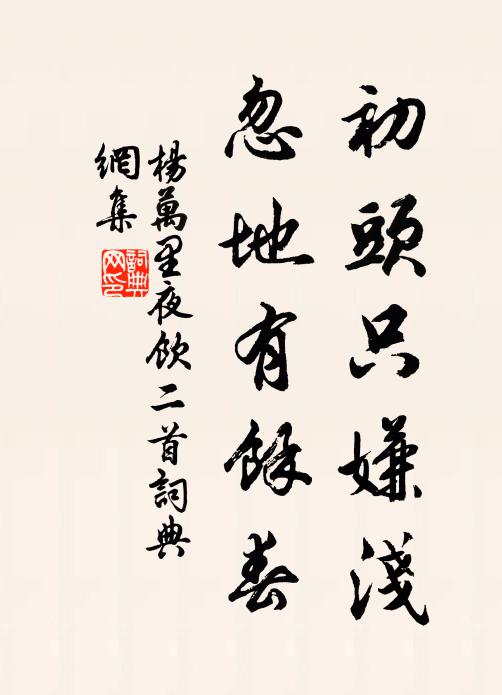 初頭只嫌淺
忽地有餘春
楊萬里夜飲二首詞典
網集
詞典
网印